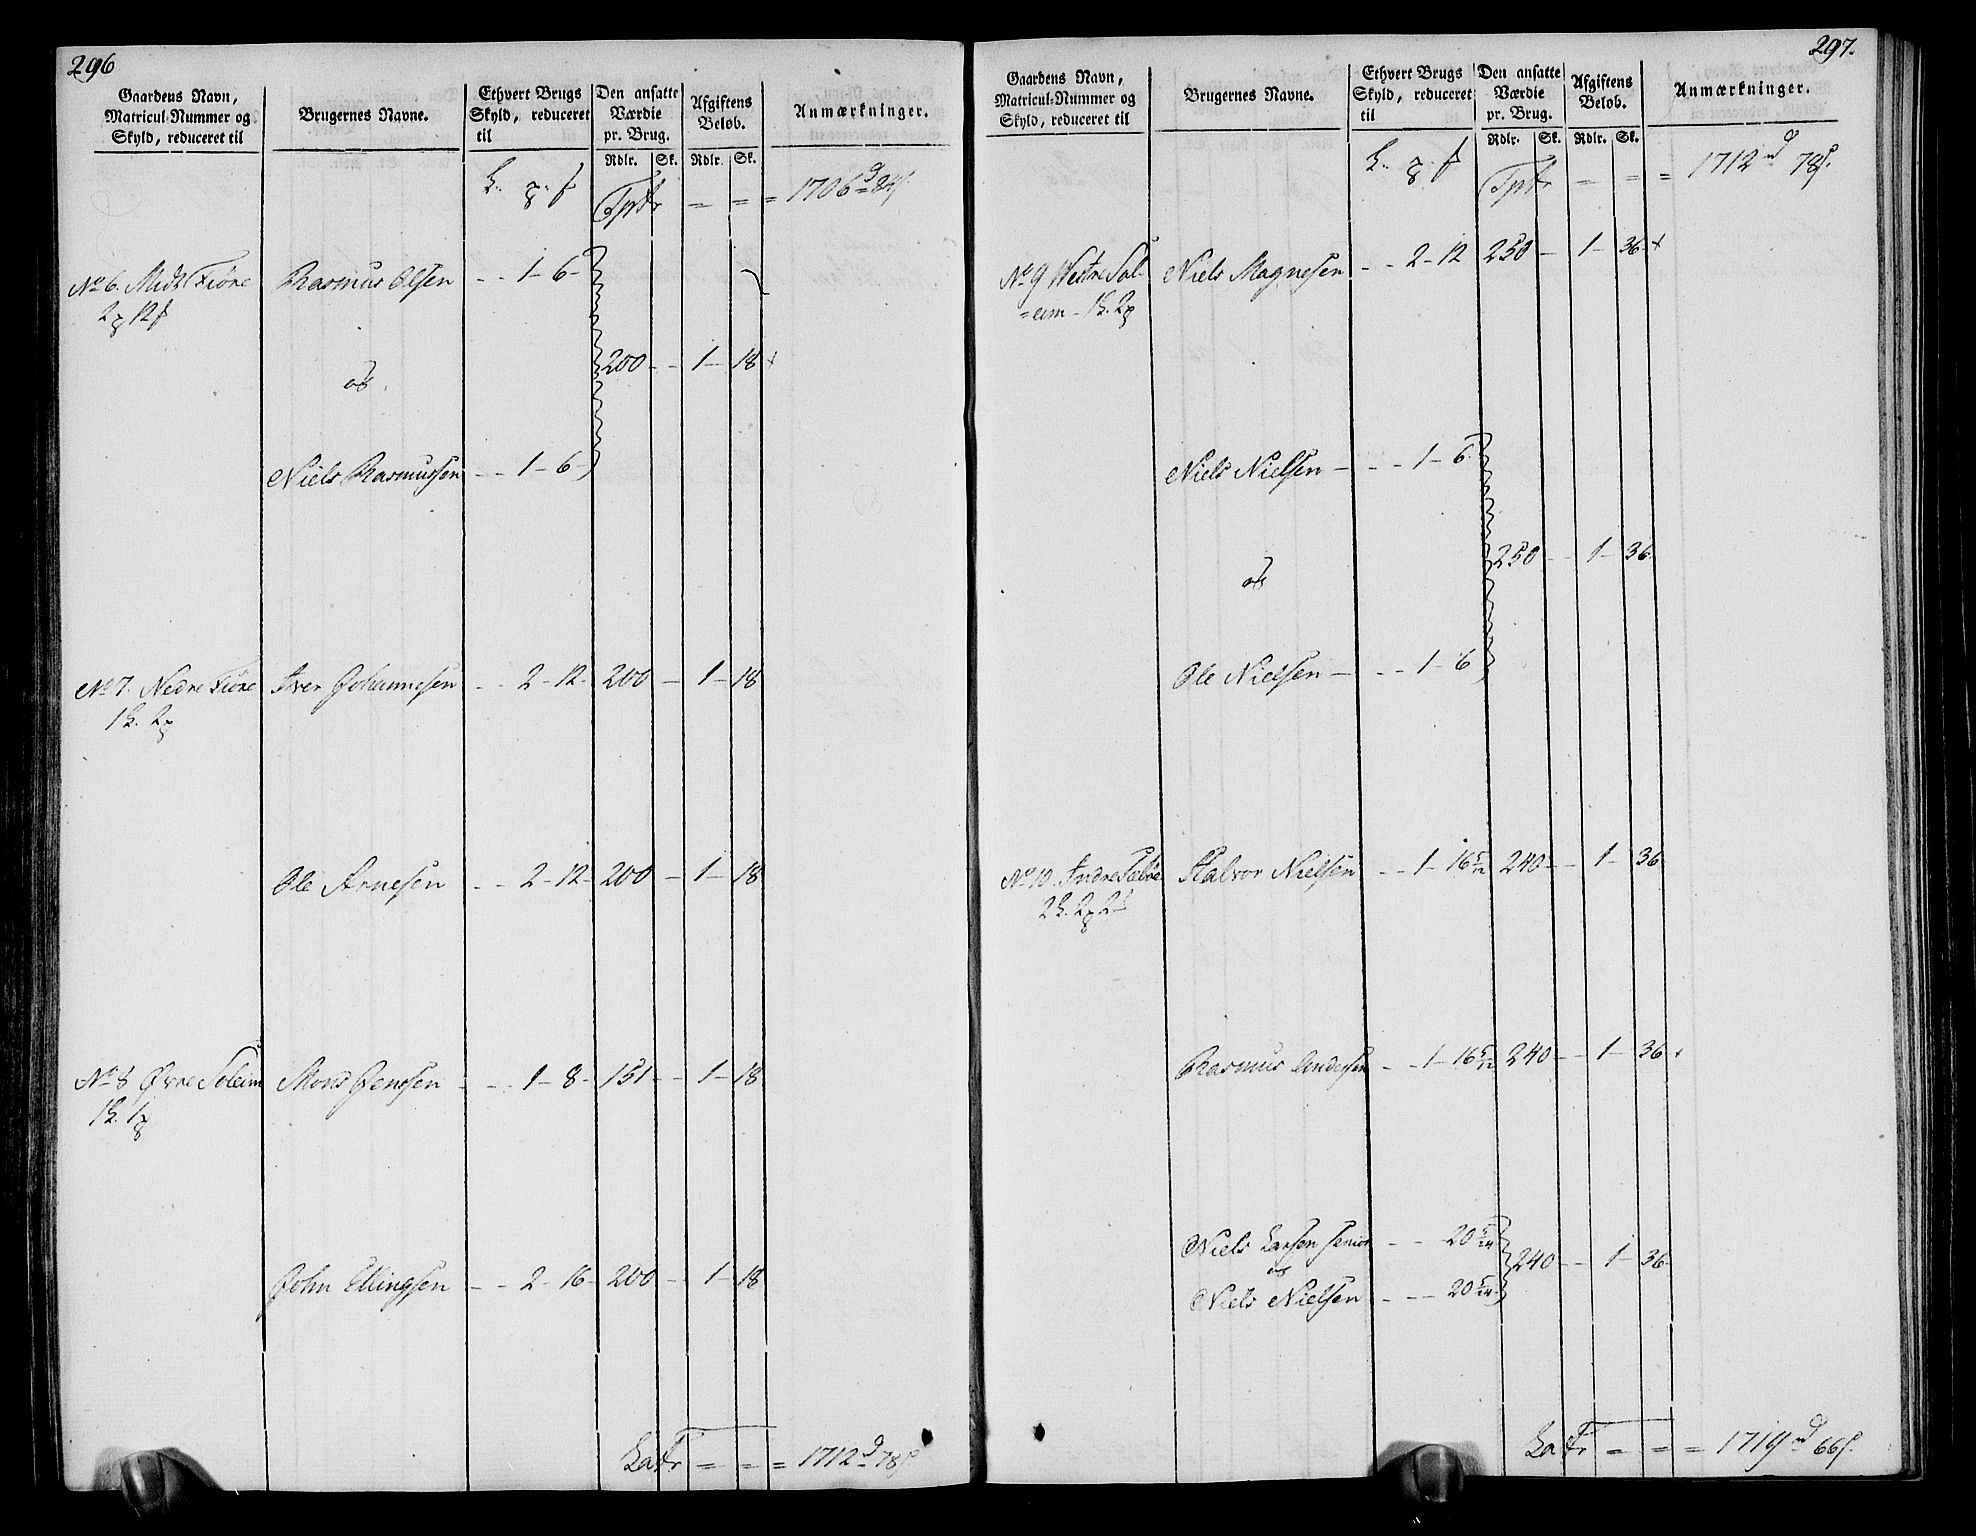 296
Gaardens Navn, Matricul-Nummer og Skyld, reduceret til
Brugernes Navne.
Ethvert Brugs Skyld, reduceret til
Den ansatte Værdie pr. Brug.
Afgiftens Belob.
Anmærkninger.
Rdlr. Sk. Rdlr. Sk.
Tprtr = = = 1706 84
No 6. Midt Fiøre Rasmus Olsen - - 1 - 6 -
2 12
og 200 - - 1 - 18
Niels Rasmussen - - 1 - 6 -
No 7. Nedre Fiøre Iver Johannesen - - 2 - 12 - 200 - 1 - 18
Ole Arnesen - - 2 - 12 - 200 - 1 - 18
No 8 Øvre Soleim Mons Jensen - - 1 - 8 - 151 - - 1 - 18
John Ellingsen - - 2 - 16 - 200 - 1 - 18
Latr = = = 1712 78
297.
Gaardens Navn, Matricul-Nummer og Skyld, reduceret til
Brugernes Navne.
Ethvert Brugs Skyld, reduceret til
Den ansatte Værdie pr. Brug.
Afgiftens Belob.
Anmærkninger.
Rdlr. Sk. Rdlr. Sk.
Tprtr = = = 1712 78
No 9 Westre Sol= Niels Magnesen - - 2 - 12 250 - 1 - 36
=eim
Niels Nielsen - - - 1 - 6
og 250 - - 1 - 36
Ole Nielsen - - - 1 - 6
No 10. Indre Halvor Nielsen - - 1 - 16 5/12 240 - - 1 - 36
Rasmus Andersen - - 1 - 16 5/12 240 - - 1 - 36
Niels Larsen senior - - 20 5/24
og 240 - - 1 - 36
Niels Nielsen - - - 20 5/24
Latr = = = 1719 66